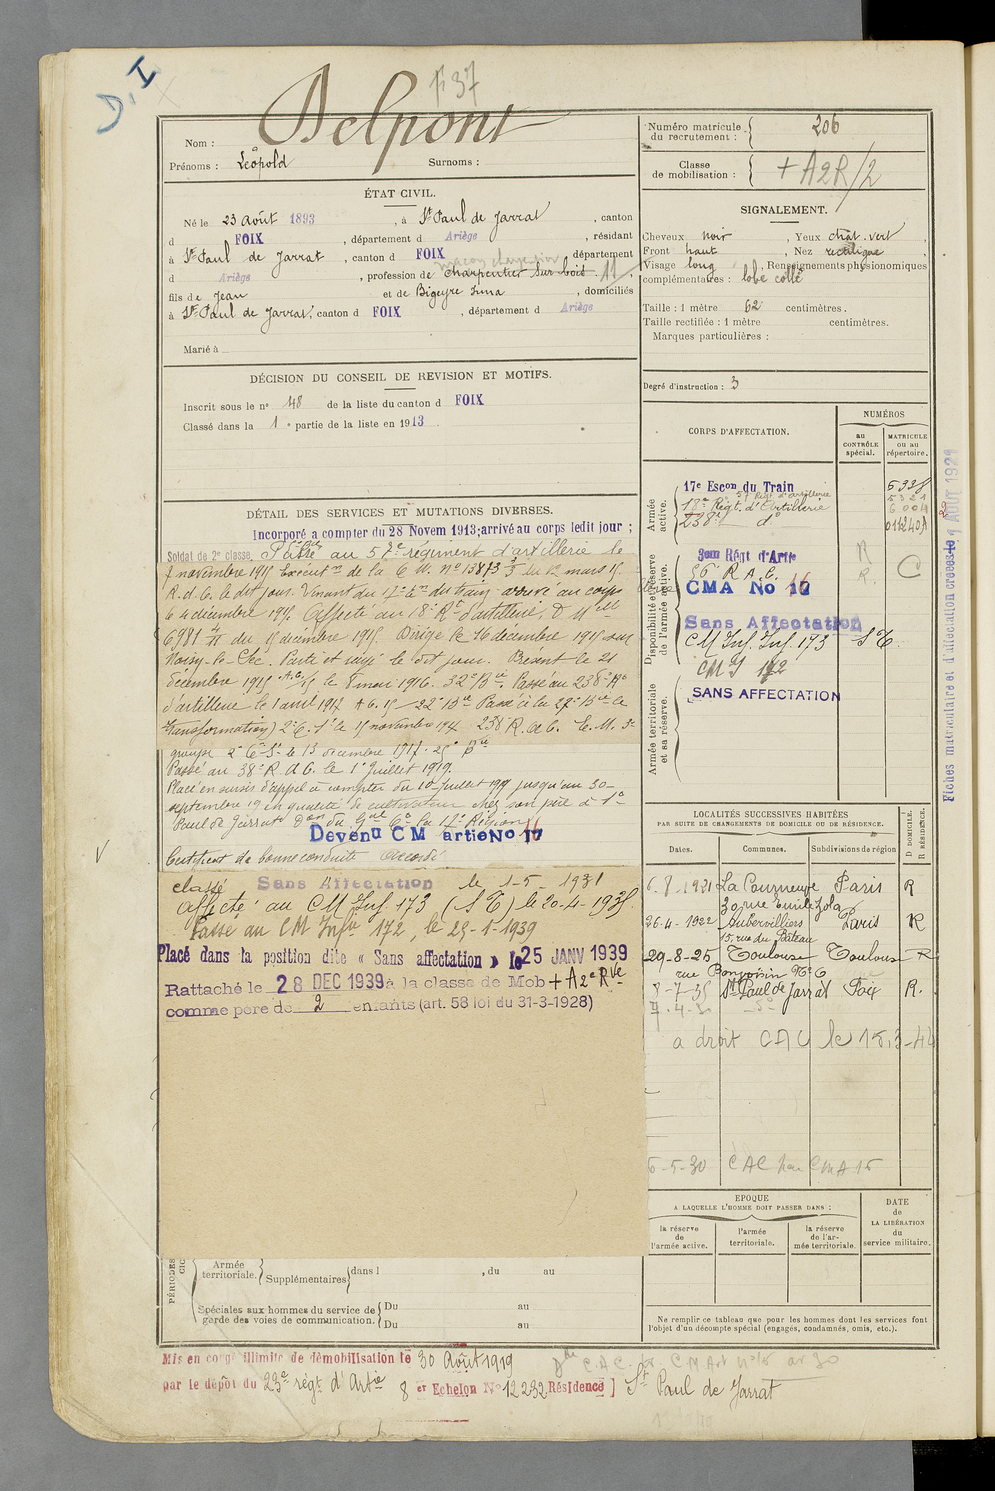 D.I
F 37
Nom : Delpont
Prénoms : Léopold Surnoms :
Numéro matricule du recrutement : 206
Classe de mobilisation : + A2R/2
ÉTAT CIVIL.
Né le 23 Août 1893, à St Paul de Jarrat, canton
d FOIX, département d Ariège, résidant
à St Paul de Jarrat, canton d FOIX, département
d Ariège, profession de charpentier sur bois.
fils de Jean et de Bigeyre Anna, domiciliés
à St Paul de Jarrat, canton d FOIX, département d Ariège
Marié à
SIGNALEMENT.
Cheveux noir, Yeux chât. vert,
Front haut, Nez rectiligne
Visage long, Renseignements physionomiques
complémentaires : lobe collé
Taille : 1 mètre 62 centimètres.
Taille rectifiée : 1 mètre centimètres.
Marques particulières :
Degré d'instruction : 3
DÉCISION DU CONSEIL DE REVISION ET MOTIFS.
Inscrit sous le n° 48 de la liste du canton d FOIX
Classé dans la 1e partie de la liste en 1913
DÉTAIL DES SERVICES ET MUTATIONS DIVERSES.
Incorporé a compter du 28 Novem 1913; arrivé au corps ledit jour ;
Soldat de 2e classe, Passé au 57e régiment d'artillerie le
7 novembre 1915 Exécut on de la C. M. n° 15873 3/3 du 12 mars 15.
R. d. C. le dit jour. Venant du 17e Em du train arrivé au corps
le 4 décembre 1915. Affecté au 18e Rt d'artillerie, D. Mlle
6981 du 15 décembre 1915 Dirigé le 16 décembre 1915 sur
Noisy-le-Sec. Parti et rayé le dit jour. Présent le 21
décembre 1915. le 8 mai 1916. 32e Bie. Passé au 238e Rt
d'artillerie le 1 avril 1917 22e Bie Passé à la 27e Bie (la
transformation) le 15 novembre 1917 238 R. A. C. E. M. 3e
groupe le 13 décembre 1917. 25e Bie
Passé au 38e R. A. C. le 1er Juillet 1919.
Placé en sursis d'appel à compter du 10 Juillet 1919 jusqu'au 30
septembre 19 en qualité de cultivateur chez son père à St
Paul de Jarrat Don du Gal Ct la 17e Région
Devenu CM artie No 17 16
Certificat de bonne conduite Accordé
classé Sans Affectation le 1-5-1931
affecté au CM Inf. 173 (S E) le 20-4-1935
Passé au CM Infie 172, le 25-1-1939
Placé dans la position dite « Sans affectation » le 25 JANV 1939
Rattaché le 28 DEC 1939 à la classe de Mob + A2e Rve
comme père de 2 enfants (art. 58 loi du 31-3-1928)
CORPS D'AFFECTATION.
NUMÉROS
au CONTRÔLE spécial.
MATRICULE ou au répertoire.
Armée active.
17e Escon du Train 5338
57e Régt d'artillerie 5321
18e Régt. d'Artillerie 6004
238e do 011240A
Disponibilité et réserve de l'armée active.
3em Régt d'Artie R
56e R A C. R. C
CMA No 10 16
Sans Affectation
CM Inf. Inf. 173 S E.
CM I 172
Armée territoriale et sa réserve.
SANS AFFECTATION
Fiches matriculaire et d'affectation créées le 29 AOUT 1921
LOCALITÉS SUCCESSIVES HABITÉES
PAR SUITE DE CHANGEMENTS DE DOMICILE OU DE RÉSIDENCE.
Dates. Communes. Subdivisions de région
D DOMICILE. R RÉSIDENCE.
6-8-1921 La Courneuve Paris R
30 rue Emile Zola
26-4-1922 Aubervilliers Paris R
15, rue du Plateau
29-8-25 Toulouse Toulouse R
rue Bonjoisin No 6
7-7-35 St Paul de Jarrat Foix R.
a droit CAC le 15.3-42
6-5-30 CAC par CMA 16
EPOQUE
A LAQUELLE L'HOMME DOIT PASSER DANS :
la réserve de l'armée active.
l'armée territoriale.
la réserve de l'armée territoriale
DATE de LA LIBÉRATION du service militaire.
PÉRIODES
Armée territoriale. Supplémentaires dans l , du au
Spéciales aux hommes du service de garde des voies de communication. Du au
Du au
Ne remplir ce tableau que pour les hommes dont les services font
l'objet d'un décompte spécial (engagés, condamnés, omis, etc.).
Mis en congé illimité de démobilisation le 30 Août 1919
par le dépôt du 23e régt d'Artie 8 er Echelon No 12232 Résidence ] St Paul de Jarrat